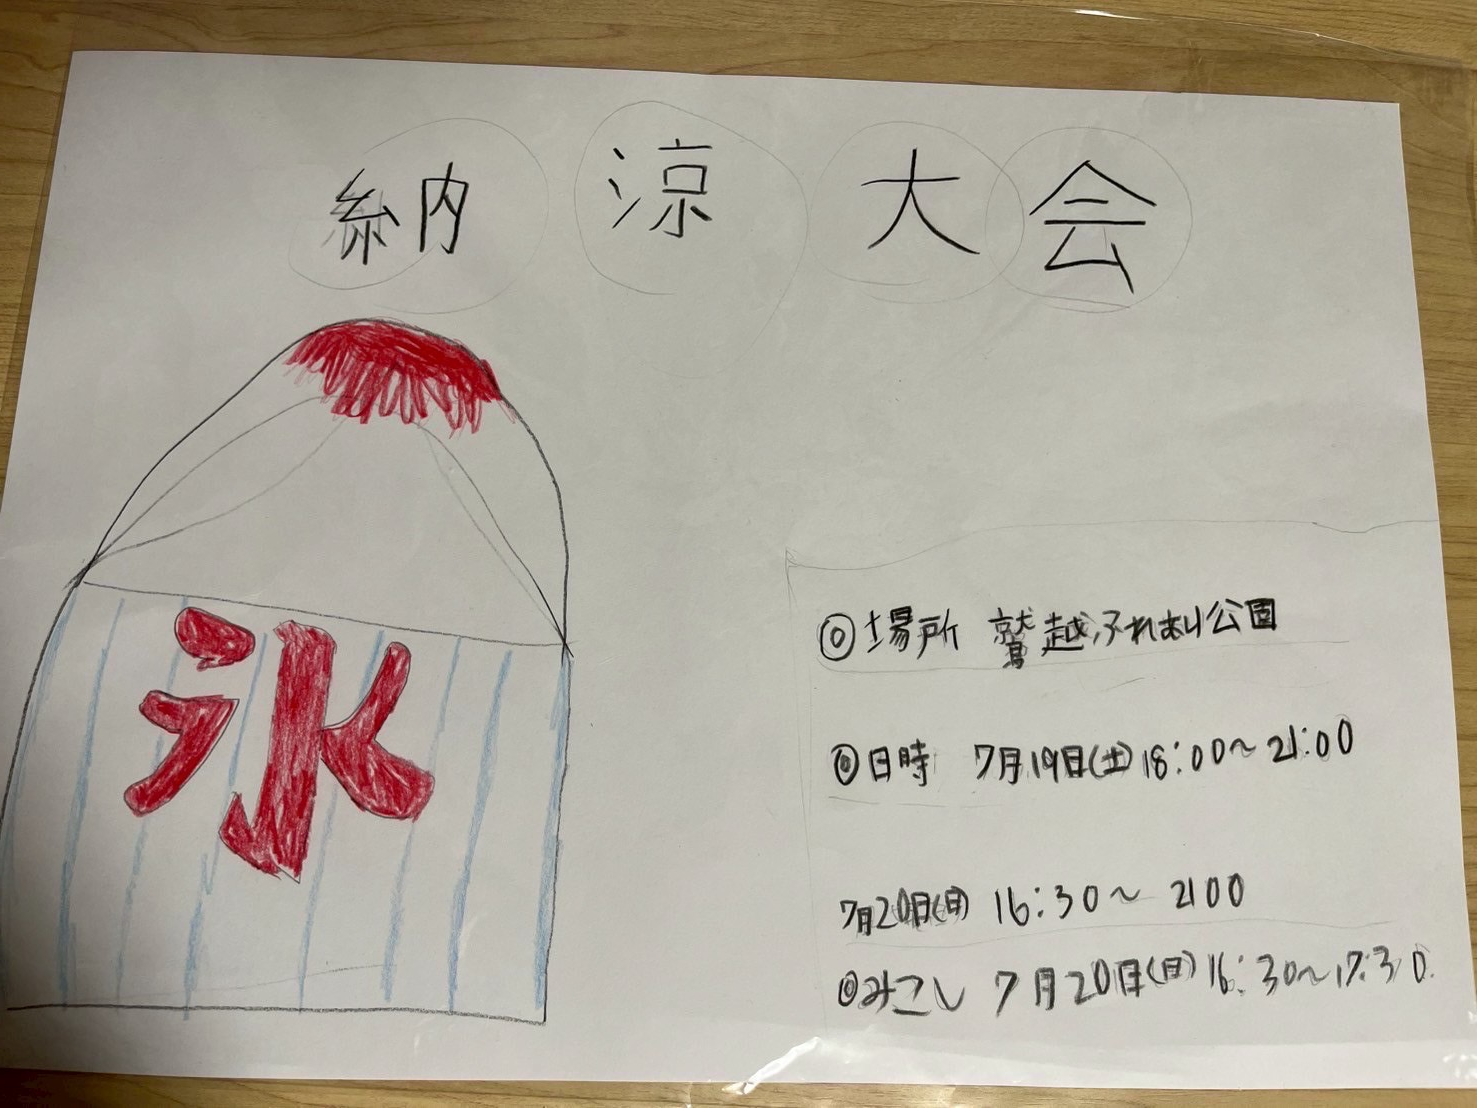 納涼大会
氷
◎場所 鷲越ふれあい公園
◎日時 7月19日(土)18:00〜21:00
7月20日(日) 16:30〜2100
◎みこし 7月20日(日)16:30〜17:30